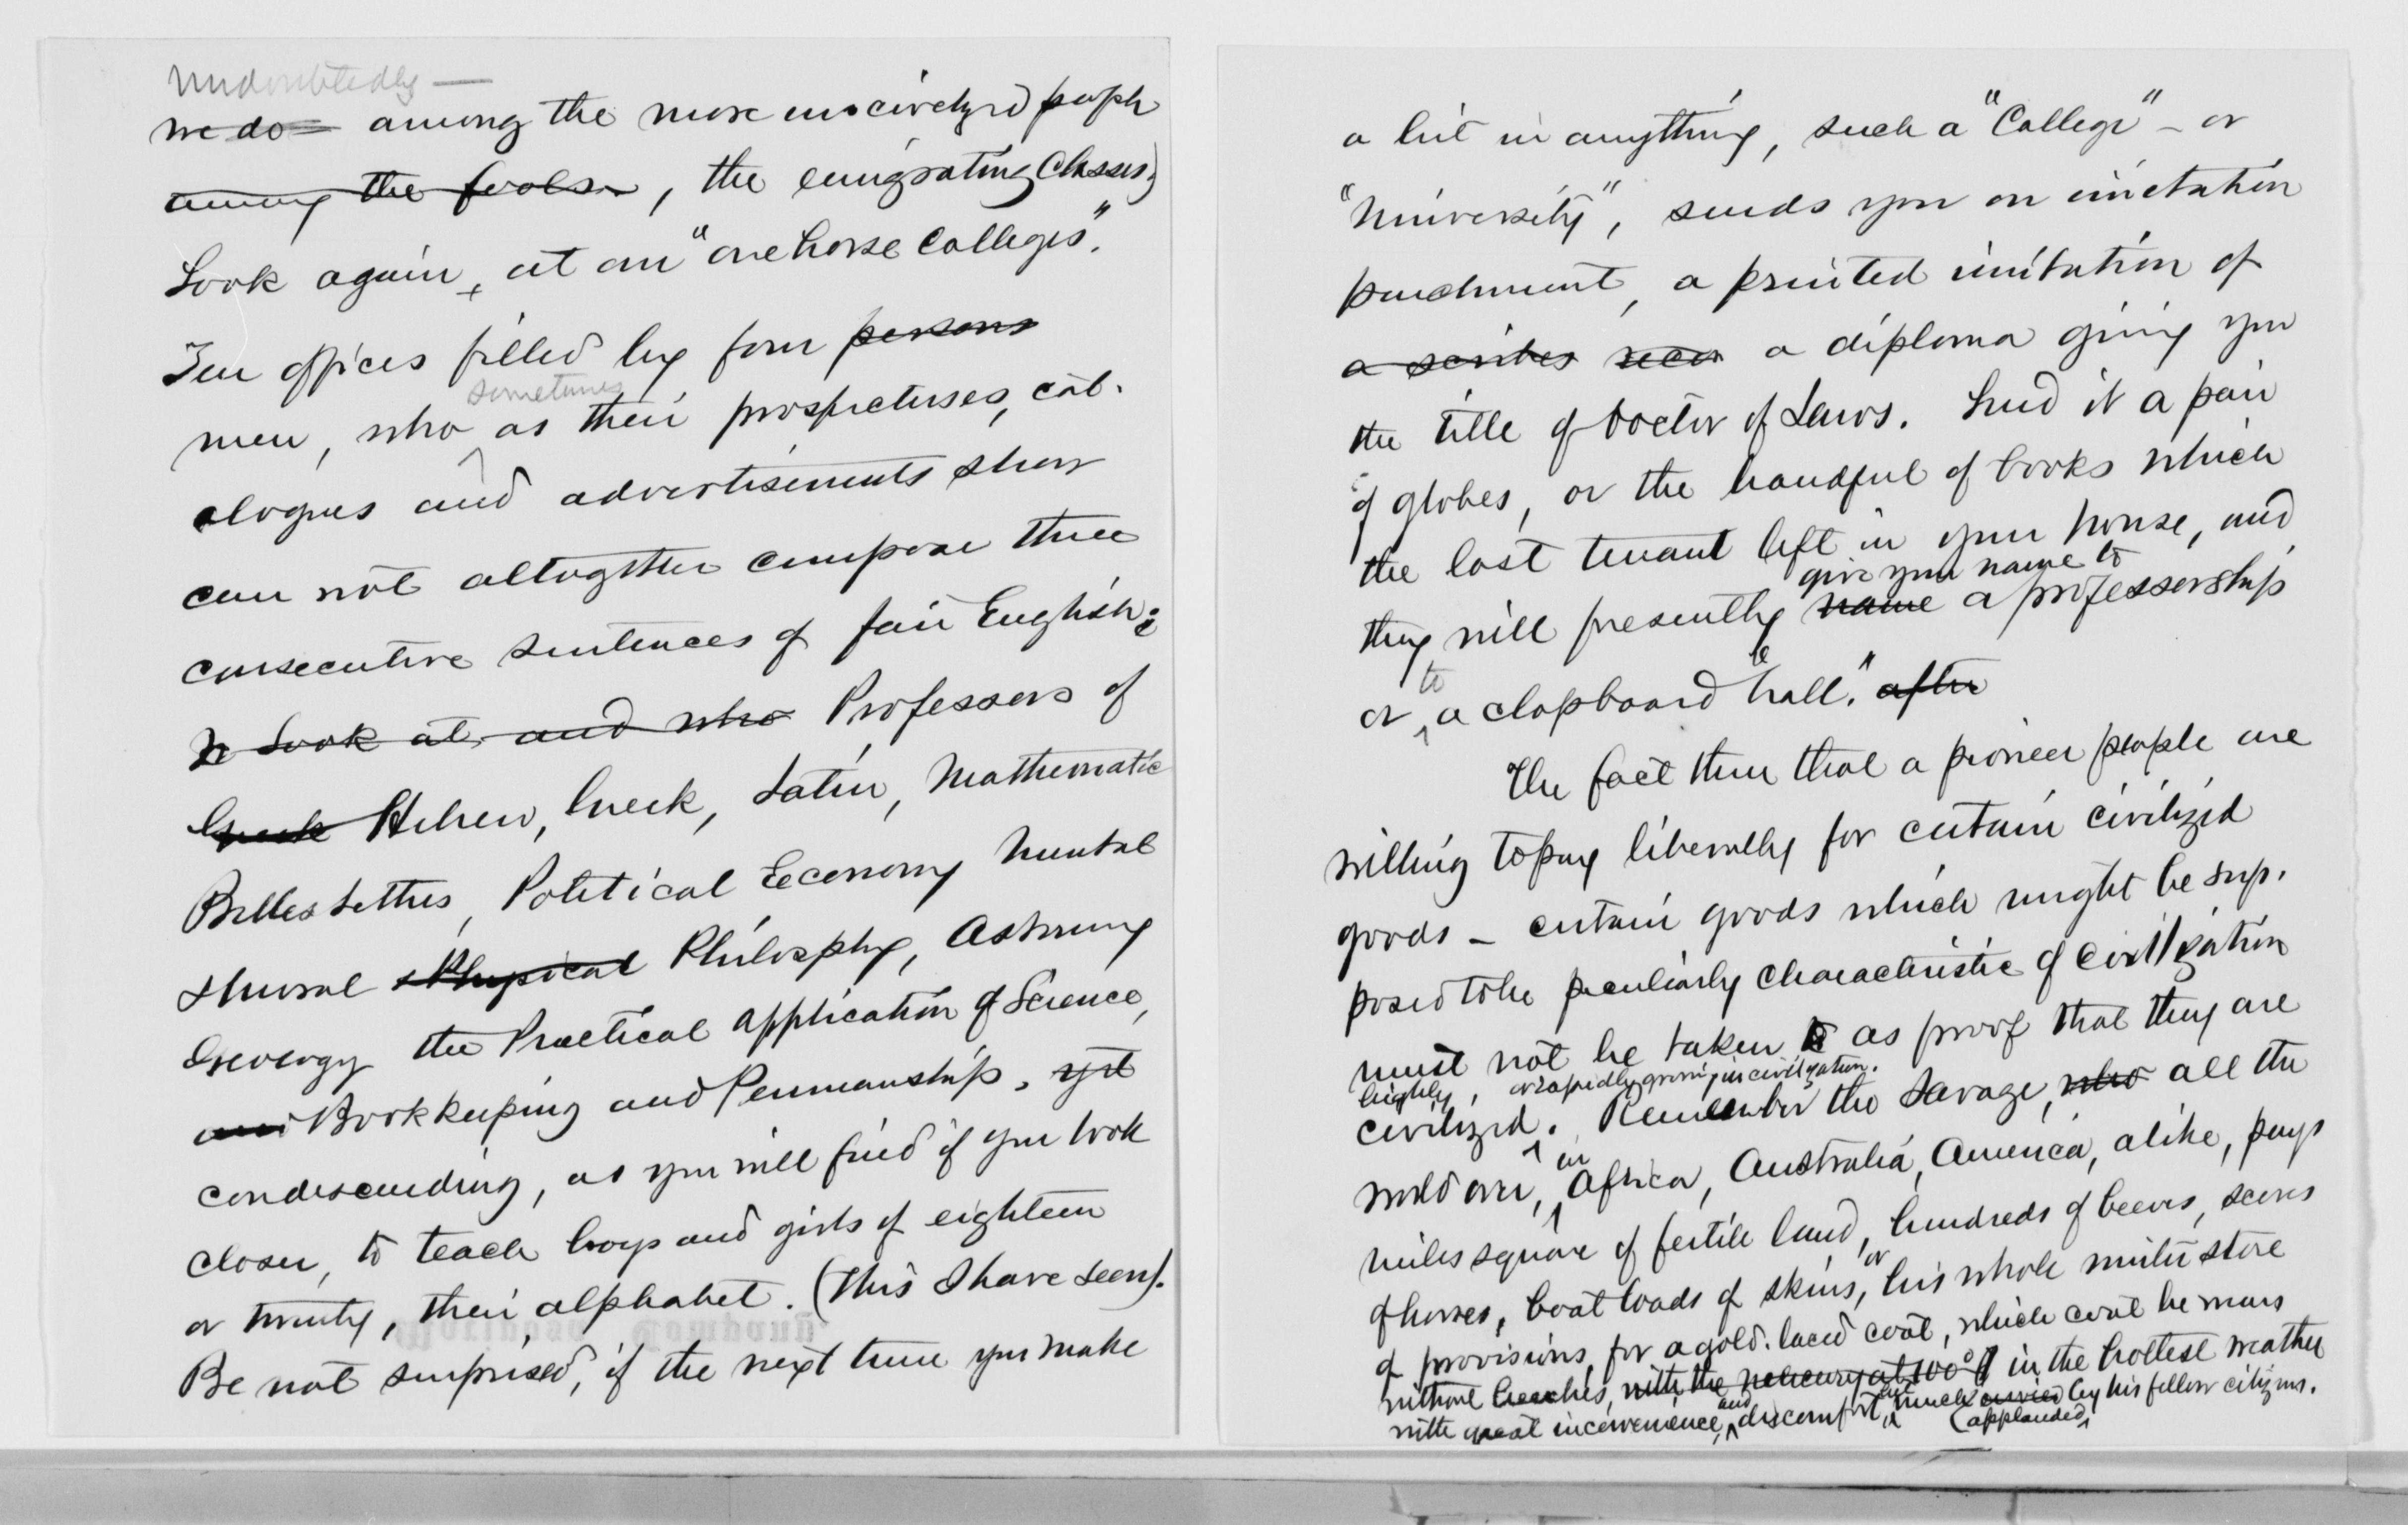 Undoubtedly —
we do — among the more uncivilyzd people
among the fools , the emigrating classes,
Look again, at our "one horse Colleges".
Ten offices filled by four persons
sometimes
men, who as their prospectuses, cat-
alogues and advertisements show
can not altogether compose three
consecutive sentences of fair English;
Look at, and who Professors of
Greek Hebrew, Greek, Latin, Mathematic
Belles Lettres, Political Economy Mental
& Moral & Physical Philosophy, Astronomy
Geology the Practical Application of Science,
and Bookkeeping and Penmanship, yet
condescending, as you will find if you look
closer, to teach boys and girls of eighteen
or twenty, their alphabet. (This I have seen).
Be not surprised, if the next time you make
a hit in anything, such a "College" - or
"University", sends you on imitation
parchment, a printed imitation of
a scribes a diploma giving you
the title of Doctor of Laws. Send it a pair
of globes, or the handful of books which
the last tenant left in your house, and
give your name to
they will presently name a professorship
or to a clapboard "hall." after
The fact then that a pioneer people are
willing to pay liberally for certain civilizd
goods - certain goods which might be sup-
posed to be peculiarly characteristic of civilization
must not be taken as proof that they are
highly, or rapidly growing in civilyzation.
civilizd. Remember the Savage, who all the
world over, in Africa, Australia, America, alike, pays
miles square of fertile land, hundreds of beeves, scores
of horses, boat loads of skins, or his whole winter store
of provisions, for a gold-laced coat, which coat he wears
without breeches, with the mercury at 100° in the hottest weather
with great inconvenience, and discomfort, but much envied by his fellow citizens.
(applauded